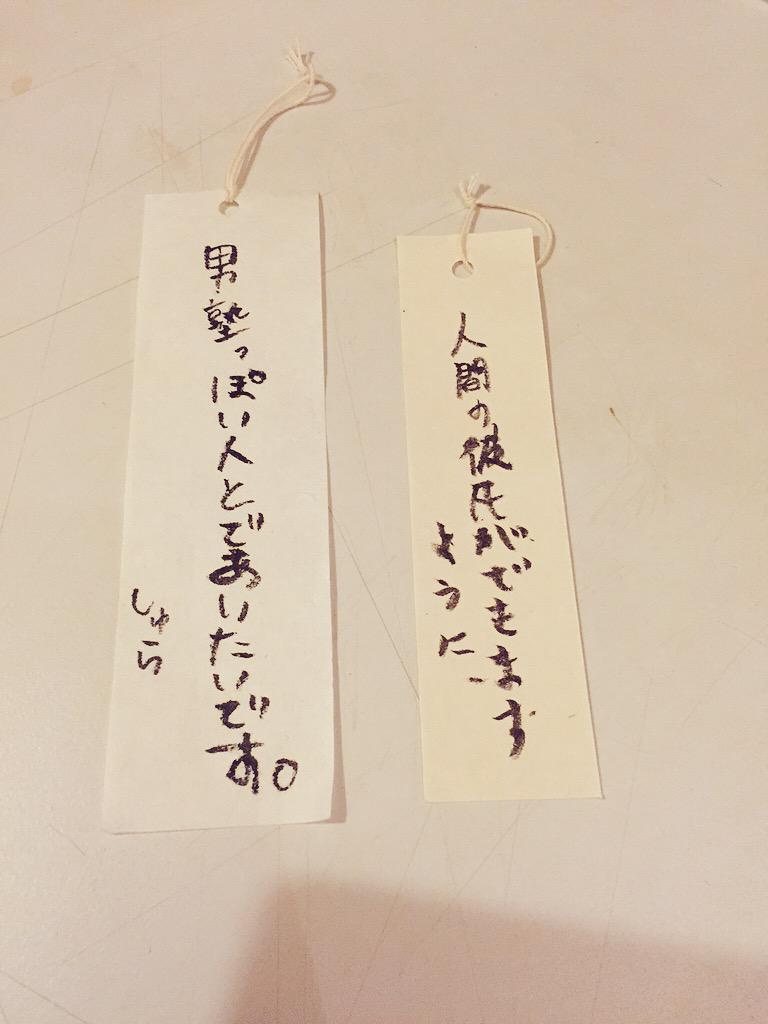 男塾っぽい人とであいたいです。
しゅら
人間の彼氏ができます
ように